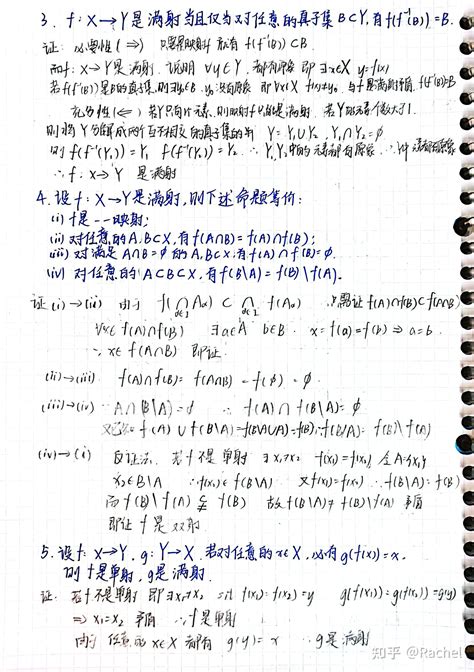 3. f: X→Y是满射当且仅当对任意的真子集B⊂Y,有f(f⁻¹(B))=B.
证: 必要性(⇒) 只要是映射,就有f(f⁻¹(B))⊂B.
而f: X→Y是满射,说明∀y∈Y,都有原象,即∃x∈X y=f(x)
充分性(⇐) 若Y只有1个元素,则映射f必是满射,若Y的元素个数大于1.
则将Y分解成两个互不相交的真子集的并 Y=Y₁∪Y₂, Y₁∩Y₂=∅
则f(f⁻¹(Y₁))=Y₁ f(f⁻¹(Y₂))=Y₂ ∴Y₁,Y₂中的元素都有原象
∴f: X→Y是满射
4. 设f: X→Y是满射,则下述命题等价:
(i) f是一一映射;
(ii) 对任意的A,B⊂X,有f(A∩B)=f(A)∩f(B);
(iii) 对满足A∩B=∅的A,B⊂X,有f(A)∩f(B)=∅;
(iv) 对任意的A⊂B⊂X,有f(B\A)=f(B)\f(A).
证(i)→(ii) 由于 f(∩Aα)⊂∩f(Aα) 只需证f(A)∩f(B)⊂f(A∩B)
∀x∈f(A)∩f(B) ∃a∈A b∈B. x=f(a)=f(b)⇒a=b.
∴x∈f(A∩B) 即证
(ii)→(iii) f(A)∩f(B)=f(A∩B)=f(∅)=∅.
(iii)→(iv) A∩(B\A)=∅ ∴f(A)∩f(B\A)=∅
f(A)∪f(B\A)=f(B\A∪A)=f(B) ∴f(B\A)=f(B)\f(A)
(iv)→(i) 反证法. 若f不是单射 ∃x₁≠x₂ f(x₁)=f(x₂), 令A={x₁}
x₂∈B\A ∴f(x₂)∈f(B\A) 又f(x₁)=f(x₂) ∴f(B\A)=f(B)
而f(B)\f(A)⫋f(B) 故f(B\A)≠f(B)\f(A) 矛盾
即证f是双射
5. 设f: X→Y, g: Y→X, 若对任意的x∈X, 必有g(f(x))=x,
则f是单射, g是满射.
证: 若f不是单射 即∃x₁≠x₂ s.t f(x₁)=f(x₂)=y g(f(x₁))=g(f(x₂))=g(y)
⇒x₁=x₂ 矛盾 ∴f是单射
由于任意的x∈X 都有 g(y)=x ∴g是满射
知乎 @Rachel